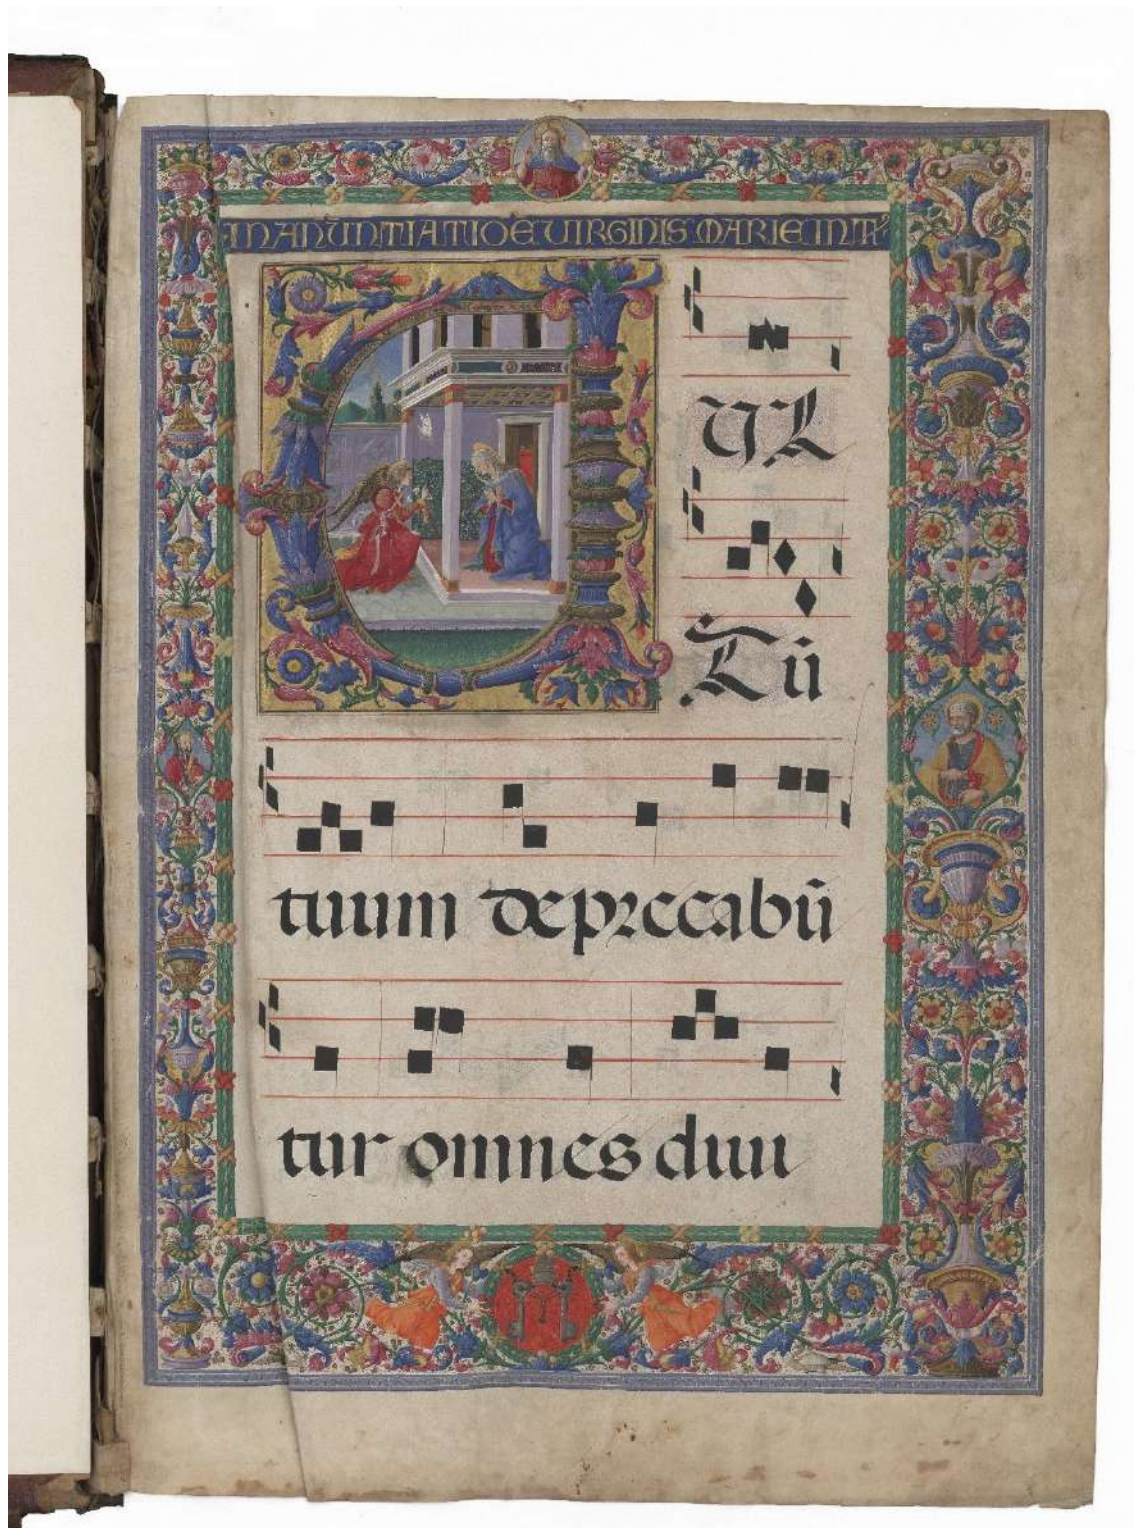 IN ANŪNTIATIOĒ VIRGINIS MARIE INTR̄
VUL
Tū
tuum deprecabū
tur omnes divi